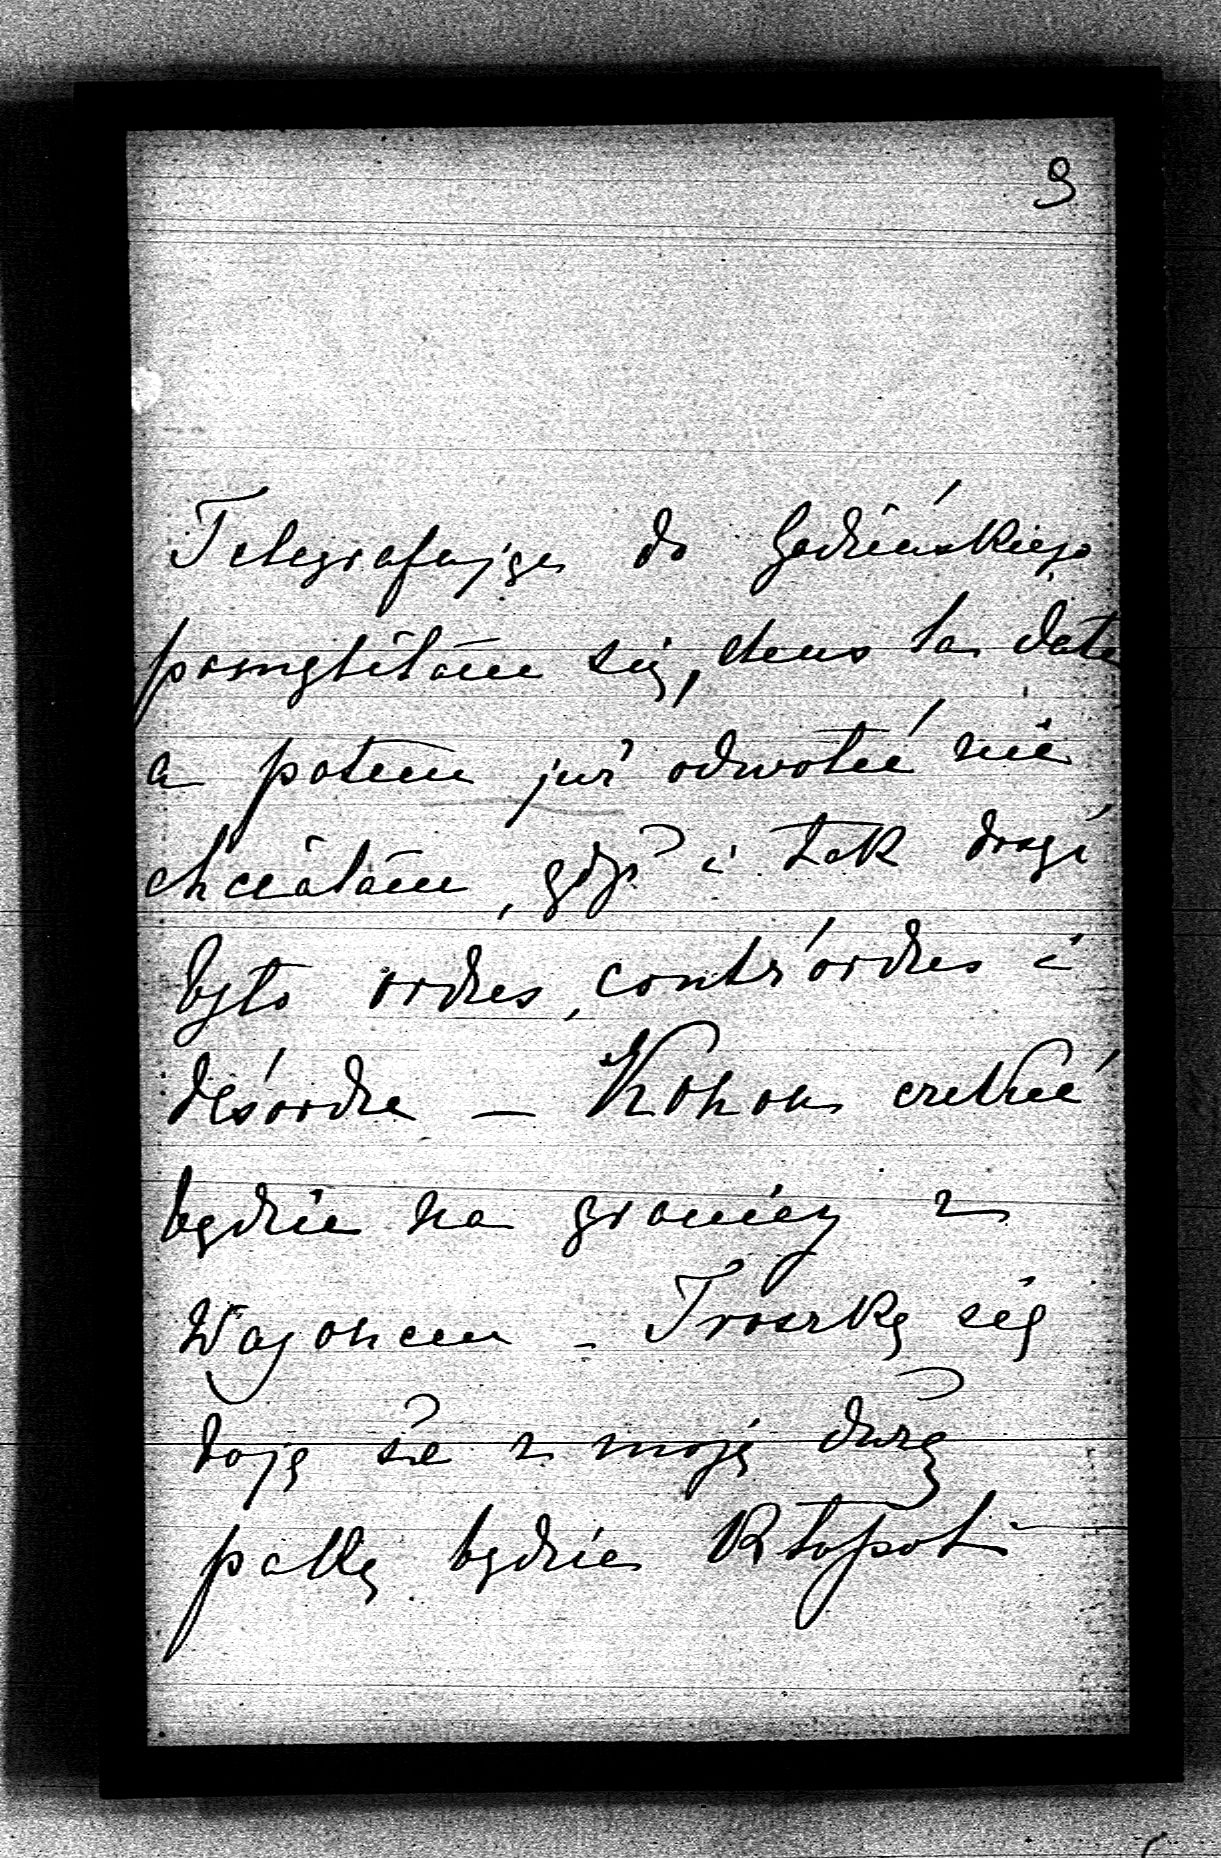 9
Telegrafując do Godzieńskiego
pomyliłam się, dans la date
a potem już odwołać nie
chciałam, gdyż i tak dosyć
było ordres, contr'ordres i
désordre — Kohou czekać
będzie na granicy z
Wagonem – Troszkę się
boję że z moją dużą
paką będzie kłopot